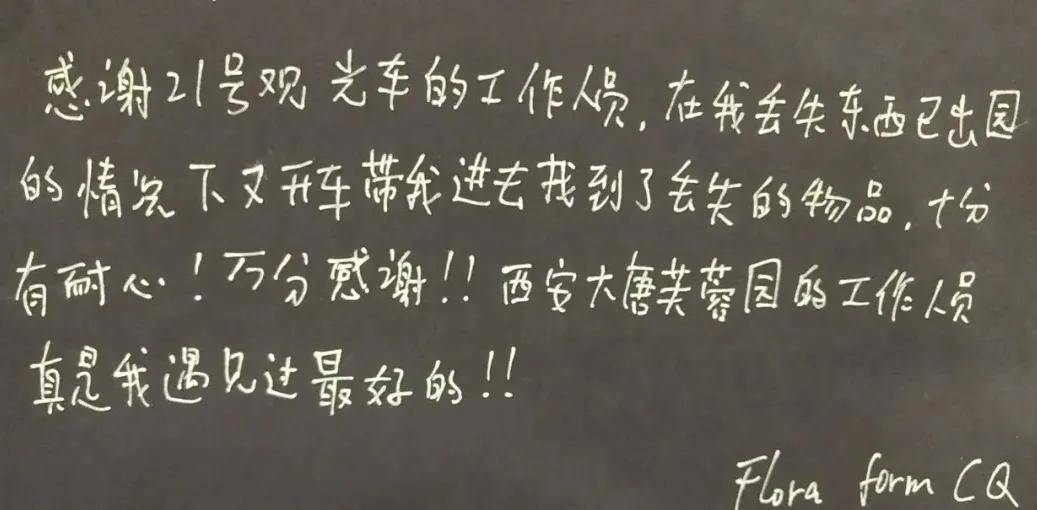 感谢21号观光车的工作人员,在我丢失东西已出园
的情况下又开车带我进去找到了丢失的物品,十分
有耐心!万分感谢!!西安大唐芙蓉园的工作人员
真是我遇见过最好的!!
Flora form CQ